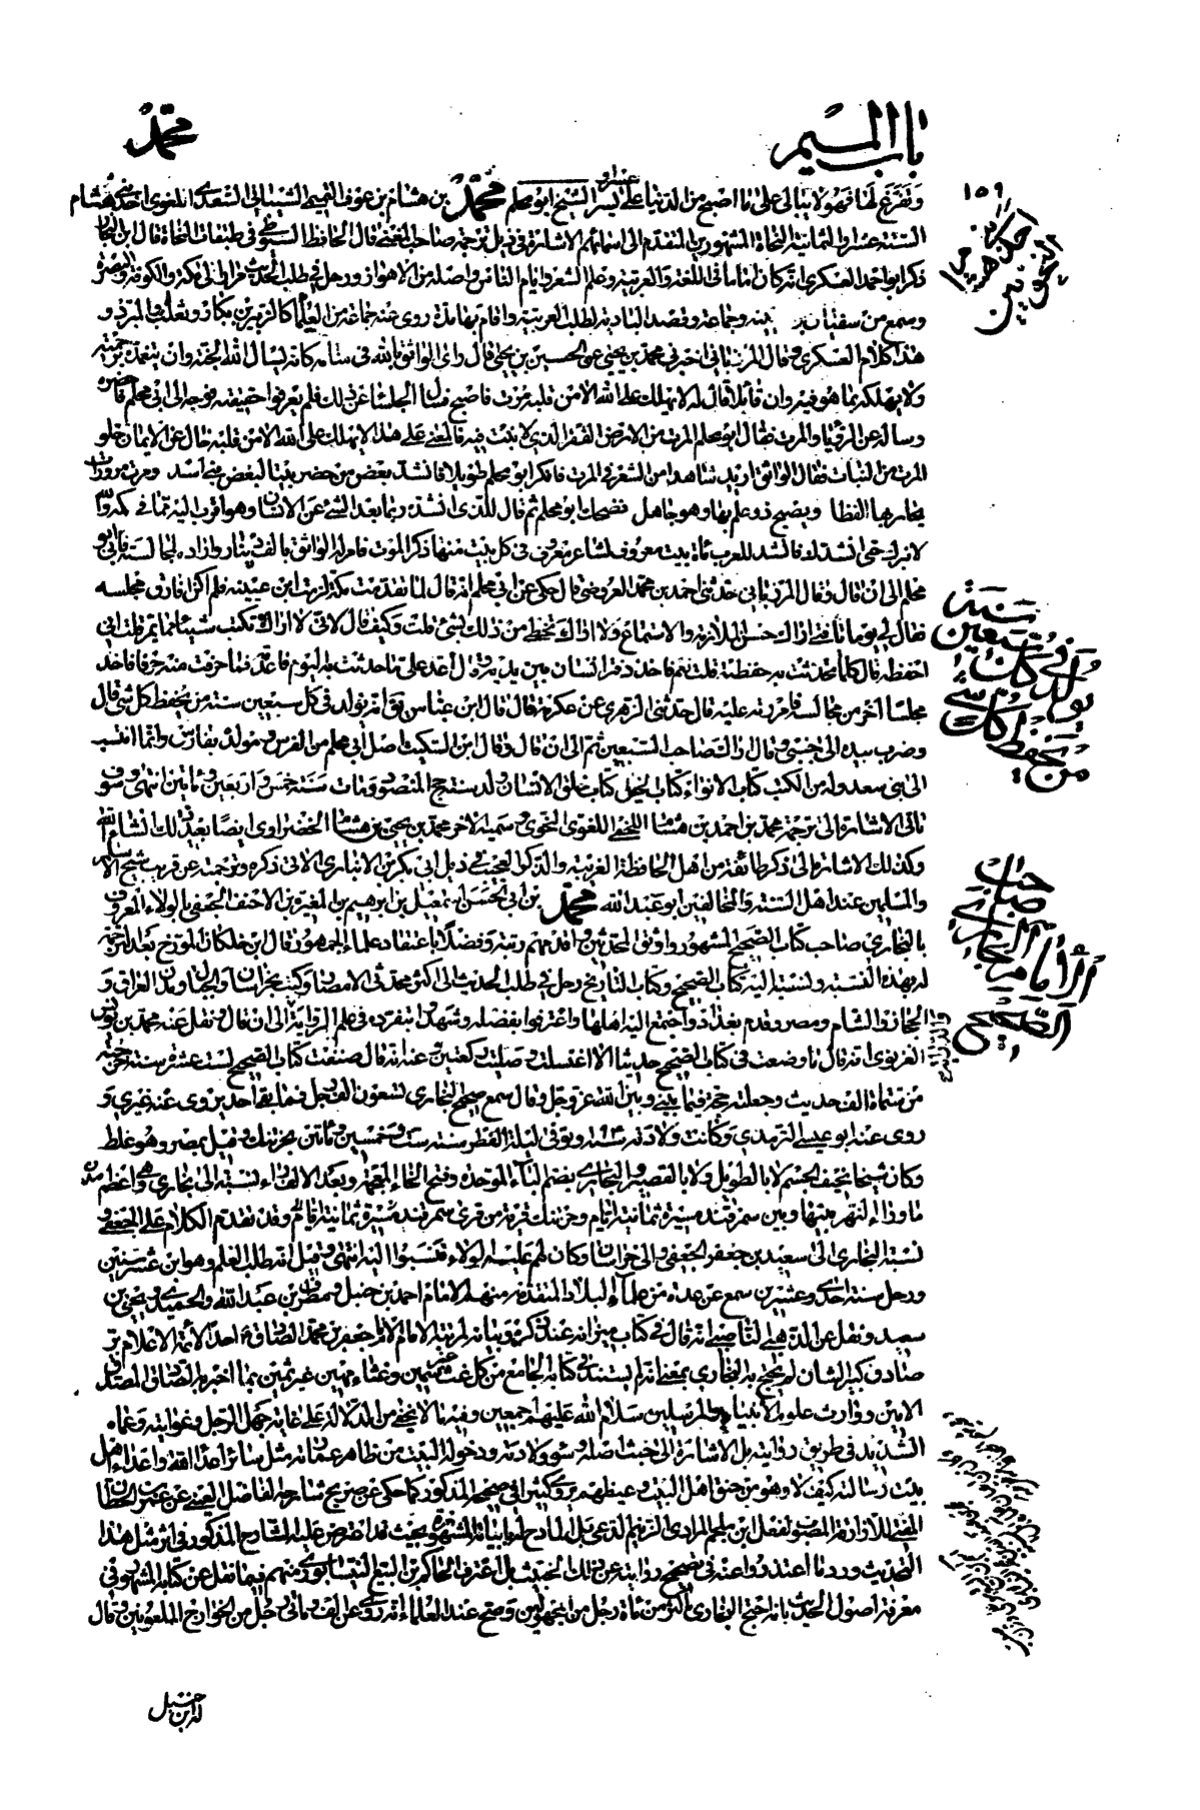 باب الميم
محمد
وتفرغ لها فهو لا يبالي على ما اصبح من الدنيا على يسر ام عسر الشيخ ابو محلم محمد بن هشام بن عوف التميمي الشيباني السعدي اللغوي احد هشام
الستة عشر او الثمانية النحاة المشهورين المتقدم الى اسمائهم الاشارة في ذيل ترجمة صاحب المغني قال الحافظ السيوطي في طبقات النحاة قال ابن النجار
ذكر ابو احمد العسكري انه كان اماما في اللغة والعربية وعلم الشعر وايام الناس واصله من الاهواز ورحل في طلب الحديث الى مكة والكوفة والبصرة
وسمع من سفيان بن عيينة وجماعة وقصد البادية لطلب العربية واقام بها مدة روى عنه جماعة من العلماء كالزبير بن بكار وثعلب والمبرد و
هذا كلام العسكري وقال المرزباني اخبرني محمد بن يحيى عن الحسين بن يحيى قال راى الواثق بالله في منامه كانه يسال الله الجنة وان يتغمده برحمته
ولا يهلكه بما هو فيه وان قائلا قال له لا يهلك على الله الا من قلبه مرت فاصبح فسال الجلساء عن ذلك فلم يعرفوا حقيقته فوجه الى ابي محلم فاحضره
وساله عن الرؤيا والمرت فقال ابو محلم المرت من الارض القفر الذي لا نبت فيه فالمعنى على هذا لا يهلك على الله الا من قلبه خال عن الايمان خلو
المرت من النبات فقال الواثق اريد شاهدا من الشعر في المرت فافكر ابو محلم طويلا فانشد بعض من حضر بيتا لبعض بني اسد ومرت مرورات
يحار بها القطا ويصبح ذو علم بها وهو جاهل فضحك ابو محلم ثم قال للذي انشده ربما بعد الشيء عن الانسان وهو اقرب اليه مما في كمه والله
لا تبرح حتى انشدك فانشد للعرب مائة بيت معروف لشاعر معروف في كل بيت منها ذكر المرت فامر له الواثق بالف دينار واراده لمجالسته فابى ابو
محلم الى ان قال وقال المرزباني حدثني احمد بن محمد العروضي قال حكي عن ابي محلم انه قال لما قدمت مكة لزمت ابن عيينة فلم اكن افارق مجلسه
فقال لي يوما يا فتى اراك حسن الملازمة والاستماع ولا اراك تحظى من ذلك بشيء قلت وكيف قال لاني لا اراك تكتب شيئا مما يمر قلت اني
احفظه قال كلما حدثت به حفظته قلت نعم فاخذ دفتر انسان بين يديه وقال اعد علي ما حدثت به اليوم فاعدته فما خرمت منه حرفا فاخذ
مجلسا اخر من مجالسه فامررته عليه قال حدثني الزهري عن عكرمة قال قال ابن عباس يقال انه يولد في كل سبعين سنة من يحفظ كل شيء قال
وضرب بيده الى جنبي وقال اراك صاحب السبعين ثم الى ان قال وقال ابن السكيت اصل ابي محلم من الفرس ومولده بفارس وانما انتسب
الى بني سعد وله من الكتب كتاب الانواء كتاب الخيل كتاب خلق الانسان ولد سنة حج المنصور ومات سنة خمس واربعين ومائتين انتهى وسوف
تاتي الاشارة الى ترجمة محمد بن احمد بن هشام اللخمي اللغوي النحوي وسميه الاخر محمد بن يحيى بن هشام الخضراوي ايضا بعد ذلك انشاء الله
وكذلك الاشارة الى ذكر طائفة من اهل الحافظة الغريبة والذكوا العجيب في ذيل ابي بكر بن الانباري الاتي ذكره وترجمته عن قريب شيخ الاسلام
والمسلمين عند اهل السنة والمخالفين ابو عبد الله محمد بن ابي الحسن اسمعيل بن ابرهيم بن المغيرة بن الاحنف الجعفي بالولاء المعروف
بالبخاري صاحب كتاب الصحيح المشهور واوثق المحدثين واقدمهم رتبة وفضلا باعتقاد علماء الجمهور قال ابن خلكان المورخ بعد الترجمة
له بهذه النسبة ونسبته اليه كتاب الصحيح وكتاب التاريخ رحل في طلب الحديث الى اكثر محدثي الامصار وكتب بخراسان والجبال ومدن العراق و
الحجاز والشام ومصر وقدم بغداد واجتمع اليه اهلها واعترفوا بفضله وشهدوا بتفرده في علم الرواية الى ان قال ونقل عنه محمد بن يوسف
الفربري انه قال ما وضعت في كتاب الصحيح حديثا الا اغتسلت وصليت ركعتين وعنه انه قال صنفت كتاب الصحيح لست عشرة سنة خرجته
من ستماة الف حديث وجعلته حجة فيما بيني وبين الله عز وجل وقال سمع صحيح البخاري تسعون الف رجل فما بقي احد يروي عنه غيري و
روى عنه ابو عيسى الترمذي وكانت ولادته سنة وتوفي ليلة الفطر سنة ست وخمسين ومائتين بخرتنك وقيل بمصر وهو غلط
وكان شيخا نحيف الجسم لا بالطويل ولا بالقصير والبخاري بضم الباء الموحدة وفتح الخاء المعجمة وبعد الالف راء نسبة الى بخارى وهي اعظم مدن
ما وراء النهر بينها وبين سمرقند مسيرة ثمانية ايام وخرتنك قرية من قرى سمرقند وقد تقدم الكلام على الجعفي و
نسبة البخاري الى سعيد بن جعفر الجعفي والي خراسان وكان لهم عليه الولاء فنسبوا اليه انتهى وقيل انه طلب العلم وهو ابن عشر سنين
ورحل سنة احدى وعشرين سمع عن عدة من علماء البلاد المتقدمة منهم الامام احمد بن حنبل ومطرف بن عبد الله والحميدي ويحيى بن
سعيد ونقل عن الذهبي الناصبي انه قال في كتاب ميزانه عند ذكره وبيانه لمرتبة الامام جعفر بن محمد الصادق احد الائمة الاعلام بر
صادق كبير الشان لم يحتج به البخاري بمعنى انه لم يستند في كتابه الجامع من كل غث وسمين وغثاء مهين غير ثمين بما اخبر به الصادق المصدق
الامين ووارث علوم الانبياء والمرسلين سلام الله عليهم اجمعين وفيه ما لا يخفى من الدلالة على غاية جهل الرجل وغوايته وعماه
الشديد في طريق روايته بل الاشارة الى خبث اصله وسوء ولادته ودخوله البيت من ظاهر عمائه مثل سائر اعداء الله واعداء اهل
بيت رسالته كيف لا وهو من حنق اهل البيت وغيظهم يروي كثيرا في صحيحه المذكور كما حكي عن صريح شارحه الفاضل العيني عن عمران بن حطان
المثني للآوارة المصوب لفعل ابن ملجم المرادي الزنيم الدعي بل المادح له بابياته المشهورة بحيث قد اعترض عليه الشارح المذكور في اثر مثل هذا
الحديث ورد ما اعتذروا عنه في تصحيح روايته عن ذلك الخبيث بل اعترف الحاكم بن البيع النيسابوري منهم فيما نقل عن كتابه المشهور في
معرفة اصول الحديث بانه احتج البخاري باكثر من مائة رجل من المجهولين وصح عند العلماء انه روى عن الف ومائتي رجل من الخوارج الملعونين وقال
له ابن حنبل
١٥٩
سنة
في كل سبعين
يولد
من يحفظ كل شيء
صاحب
الامام البخاري
الصحيح